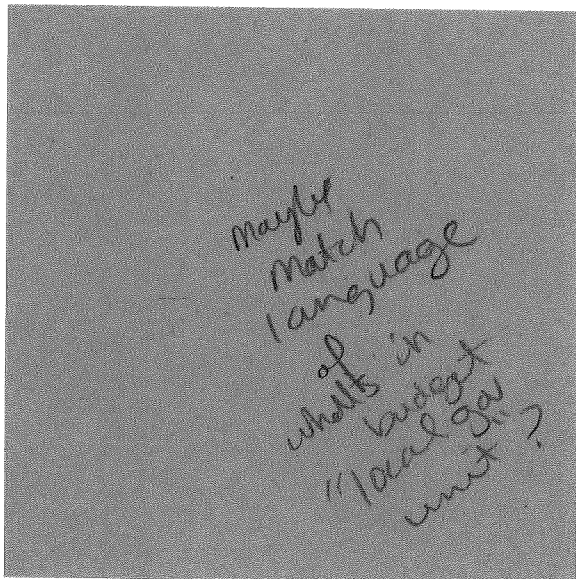 Maybe
Match
language
of
what's in
budget
"local gov
unit"?